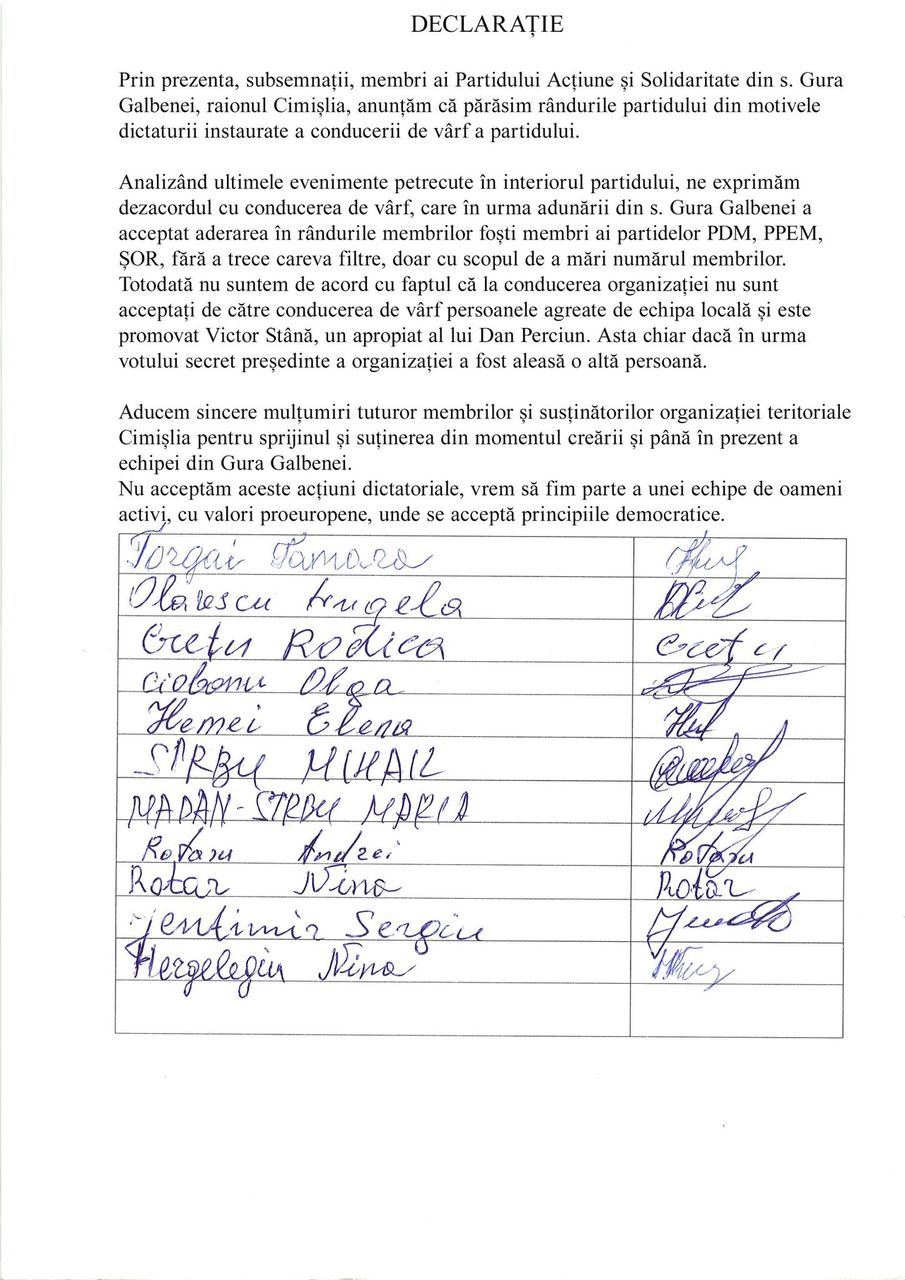 DECLARAȚIE
Prin prezenta, subsemnații, membri ai Partidului Acțiune și Solidaritate din s. Gura
Galbenei, raionul Cimișlia, anunțăm că părăsim rândurile partidului din motivele
dictaturii instaurate a conducerii de vârf a partidului.
Analizând ultimele evenimente petrecute în interiorul partidului, ne exprimăm
dezacordul cu conducerea de vârf, care în urma adunării din s. Gura Galbenei a
acceptat aderarea în rândurile membrilor foști membri ai partidelor PDM, PPEM,
ȘOR, fără a trece careva filtre, doar cu scopul de a mări numărul membrilor.
Totodată nu suntem de acord cu faptul că la conducerea organizației nu sunt
acceptați de către conducerea de vârf persoanele agreate de echipa locală și este
promovat Victor Stână, un apropiat al lui Dan Perciun. Asta chiar dacă în urma
votului secret președinte a organizației a fost aleasă o altă persoană.
Aducem sincere mulțumiri tuturor membrilor și susținătorilor organizației teritoriale
Cimișlia pentru sprijinul și suținerea din momentul creării și până în prezent a
echipei din Gura Galbenei.
Nu acceptăm aceste acțiuni dictatoriale, vrem să fim parte a unei echipe de oameni
activi, cu valori proeuropene, unde se acceptă principiile democratice.
Torgai Tamara
Olarescu Angela
Crețu Rodica Crețu
Ciobanu Olga
Hemei Elena
SÎRBU MIHAIL
MADAN-SÎRBU MARIA
Rotaru Andrei Rotaru
Rotar Nina Rotar
Jentimir Sergiu
Hergelegiu Nina